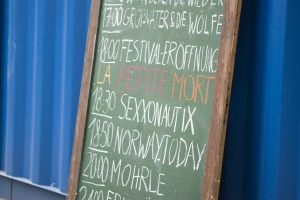 17.00 GROẞVATER & DIE WÖLFE
18.00 FESTIVALERÖFFNUNG
LA PETITE MORT
18.30 SEXXONAUTIX
18.50 NORWAY.TODAY
20.00 MOHRLE